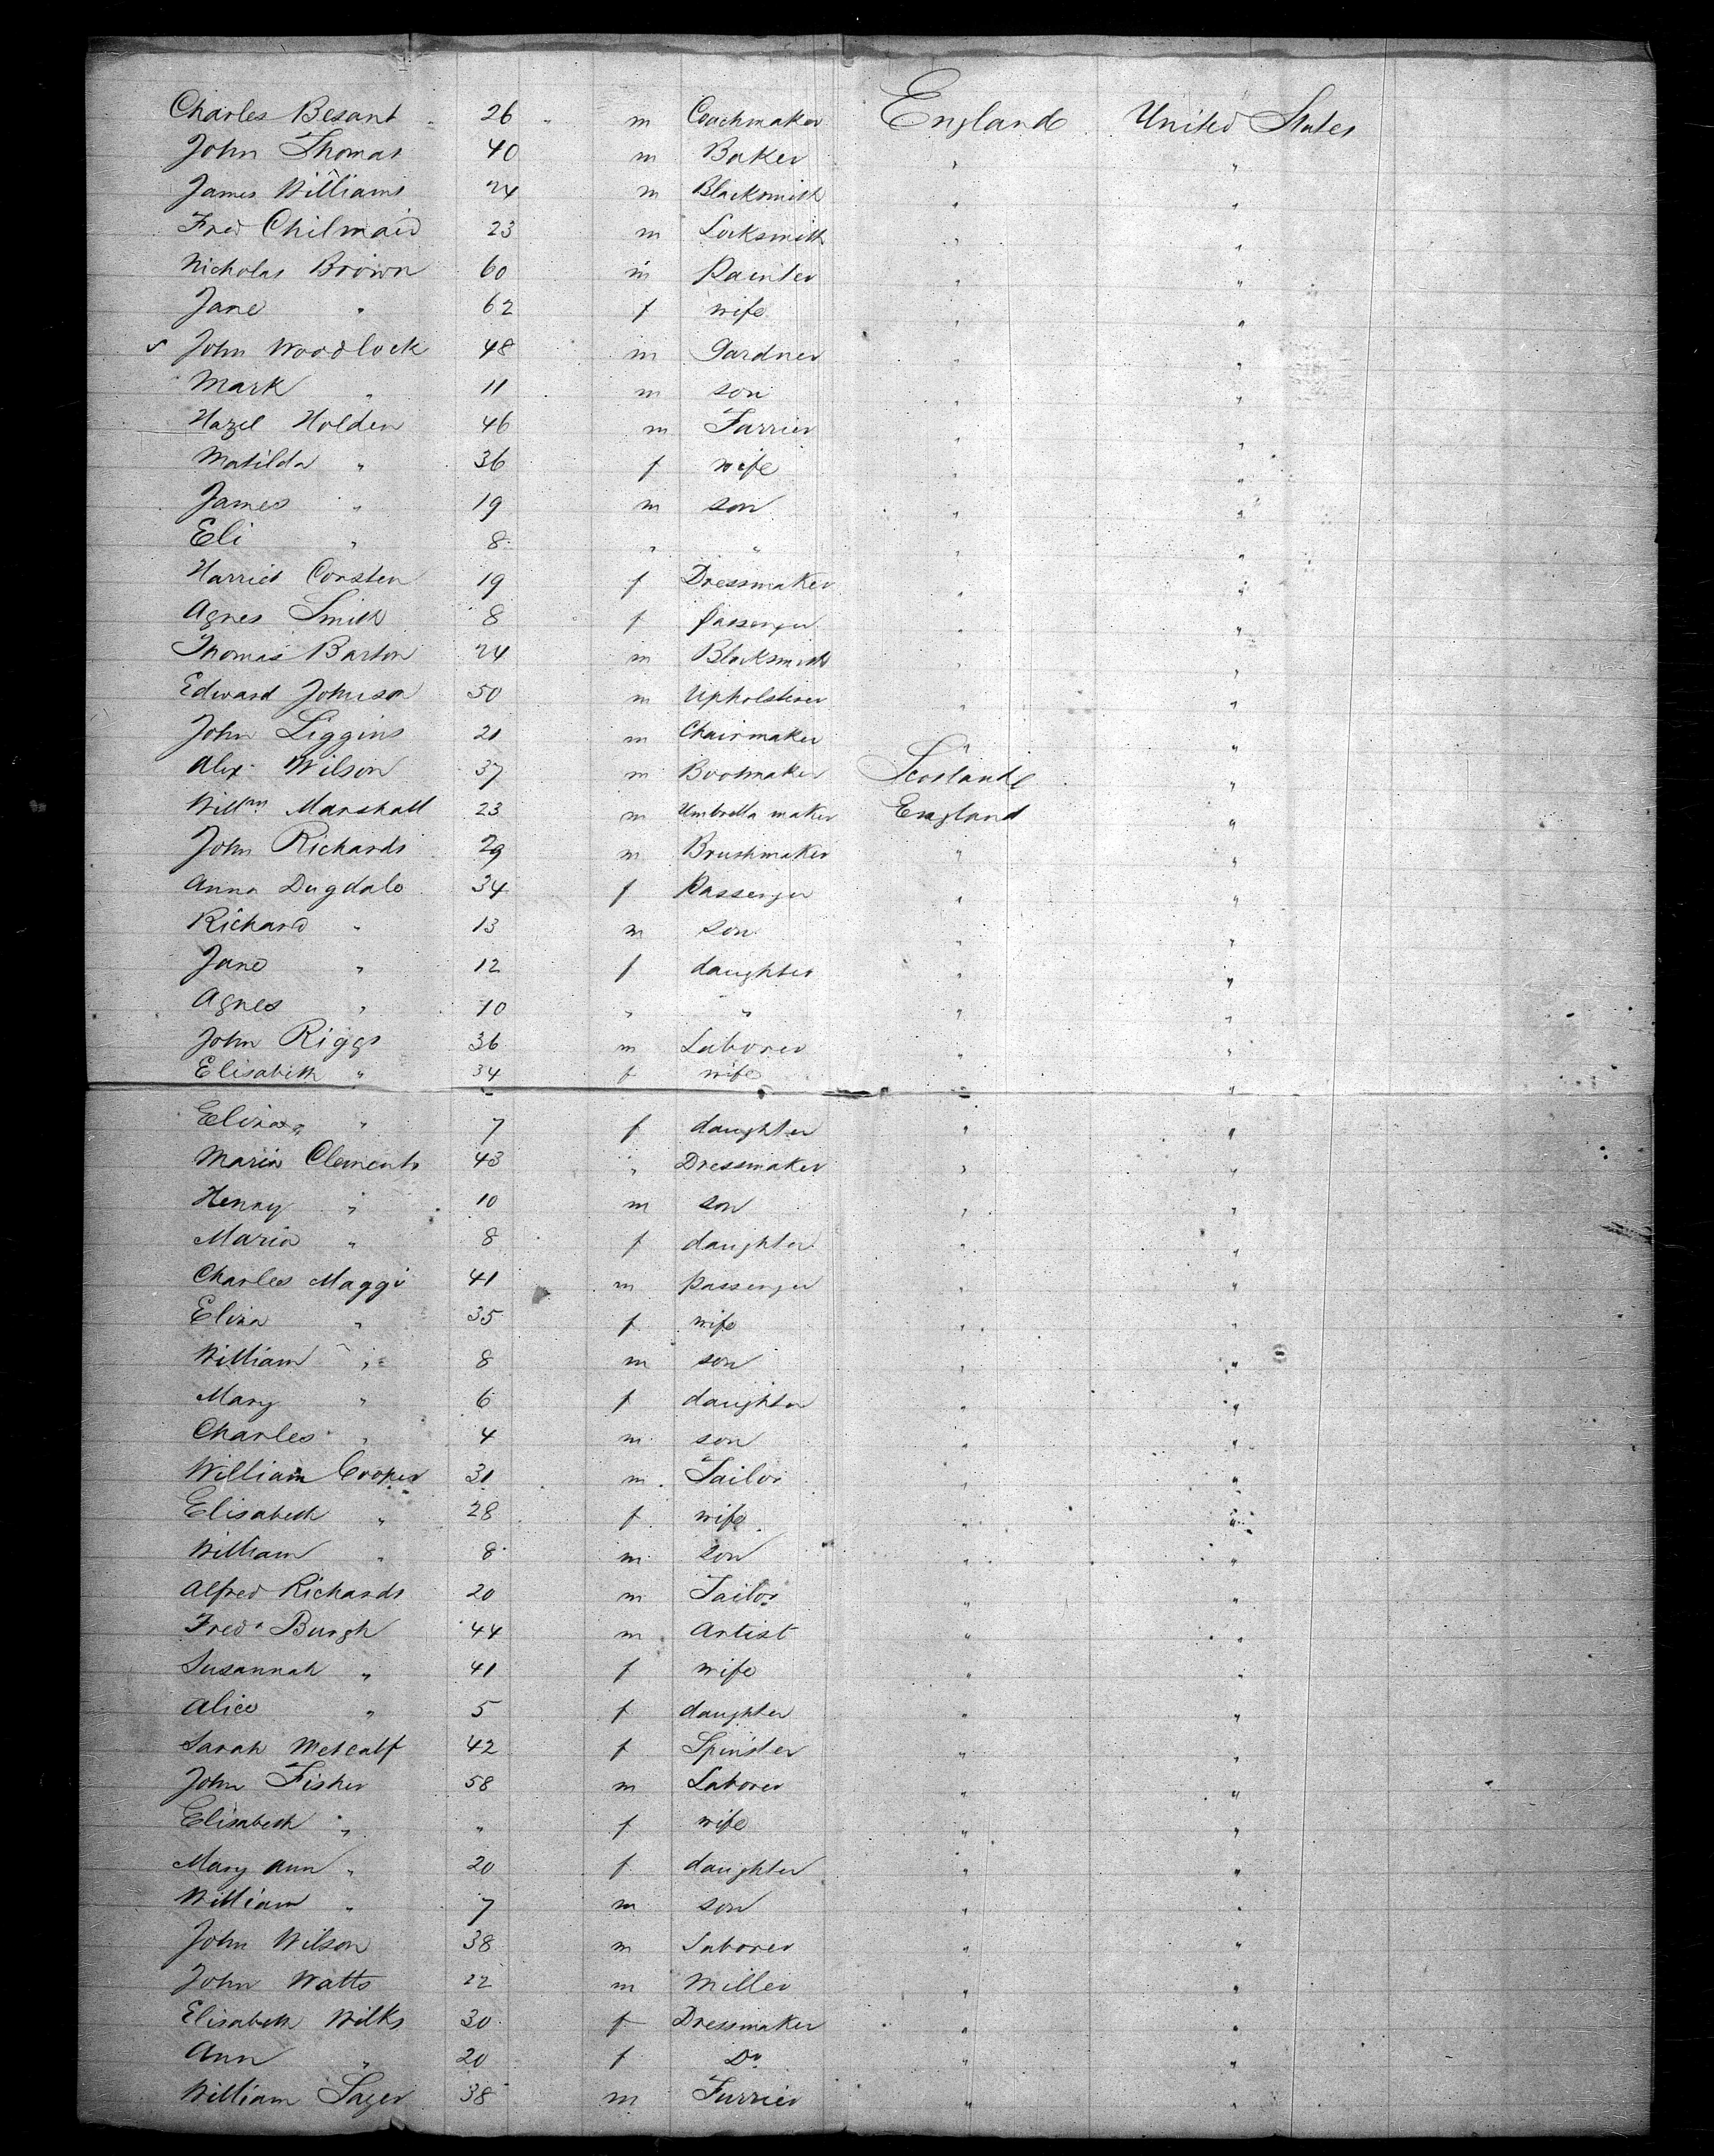 Charles Besant 26 " m Coachmaker England United States
John Thomas 40 m Baker " "
James Williams 24 m Blacksmith " "
Fred Chilmaid 23 m Locksmith " "
Nicholas Brown 60 m Painter " "
Jane " 62 f wife " "
✓ John Woodlock 48 m Gardner " "
Mark " 11 m son " "
Hazel Holden 46 m Farrier " "
Matilda " 36 f wife " "
James " 19 m son " "
Eli " 8 " " " "
Harriet Corsten 19 f Dressmaker " "
Agnes Smith 8 f passenger " "
Thomas Barton 24 m Blacksmith " "
Edward Johnson 50 m Upholsterer " "
John Liggins 21 m Chairmaker " "
Alex Wilson 37 m Bootmaker Scotland "
Willm Marshall 23 m Umbrella maker England "
John Richards 29 m Brushmaker " "
Anna Dugdale 34 f Passenger " "
Richard " 13 m son " "
Jane " 12 f daughter " "
Agnes " 10 " " " "
John Riggs 36 m Laborer " "
Elisabeth " 34 f wife " "
Eliza " 7 f daughter " "
Maria Clements 43 " Dressmaker " "
Henry " 10 m son " "
Maria " 8 f daughter " "
Charles Maggi 41 m passenger " "
Eliza " 35 f wife " "
William " 8 m son " "
Mary " 6 f daughter " "
Charles " 4 m son " "
William Cooper 31 m Tailor " "
Elisabeth " 28 f wife " "
William " 8 m son " "
Alfred Richards 20 m Tailor " "
Fred. Burgh 44 m Artist " "
Susannah " 41 f wife " "
Alice " 5 f daughter " "
Sarah Metcalf 42 f Spinster " "
John Fisher 58 m Laborer " "
Elisabeth " " f wife " "
Mary Ann " 20 f daughter " "
William " 7 m son " "
John Wilson 38 m Laborer " "
John Watts 22 m Miller " "
Elisabeth Wilks 30 f Dressmaker " "
Ann " 20 f Do " "
William Sager 38 m Furrier " "